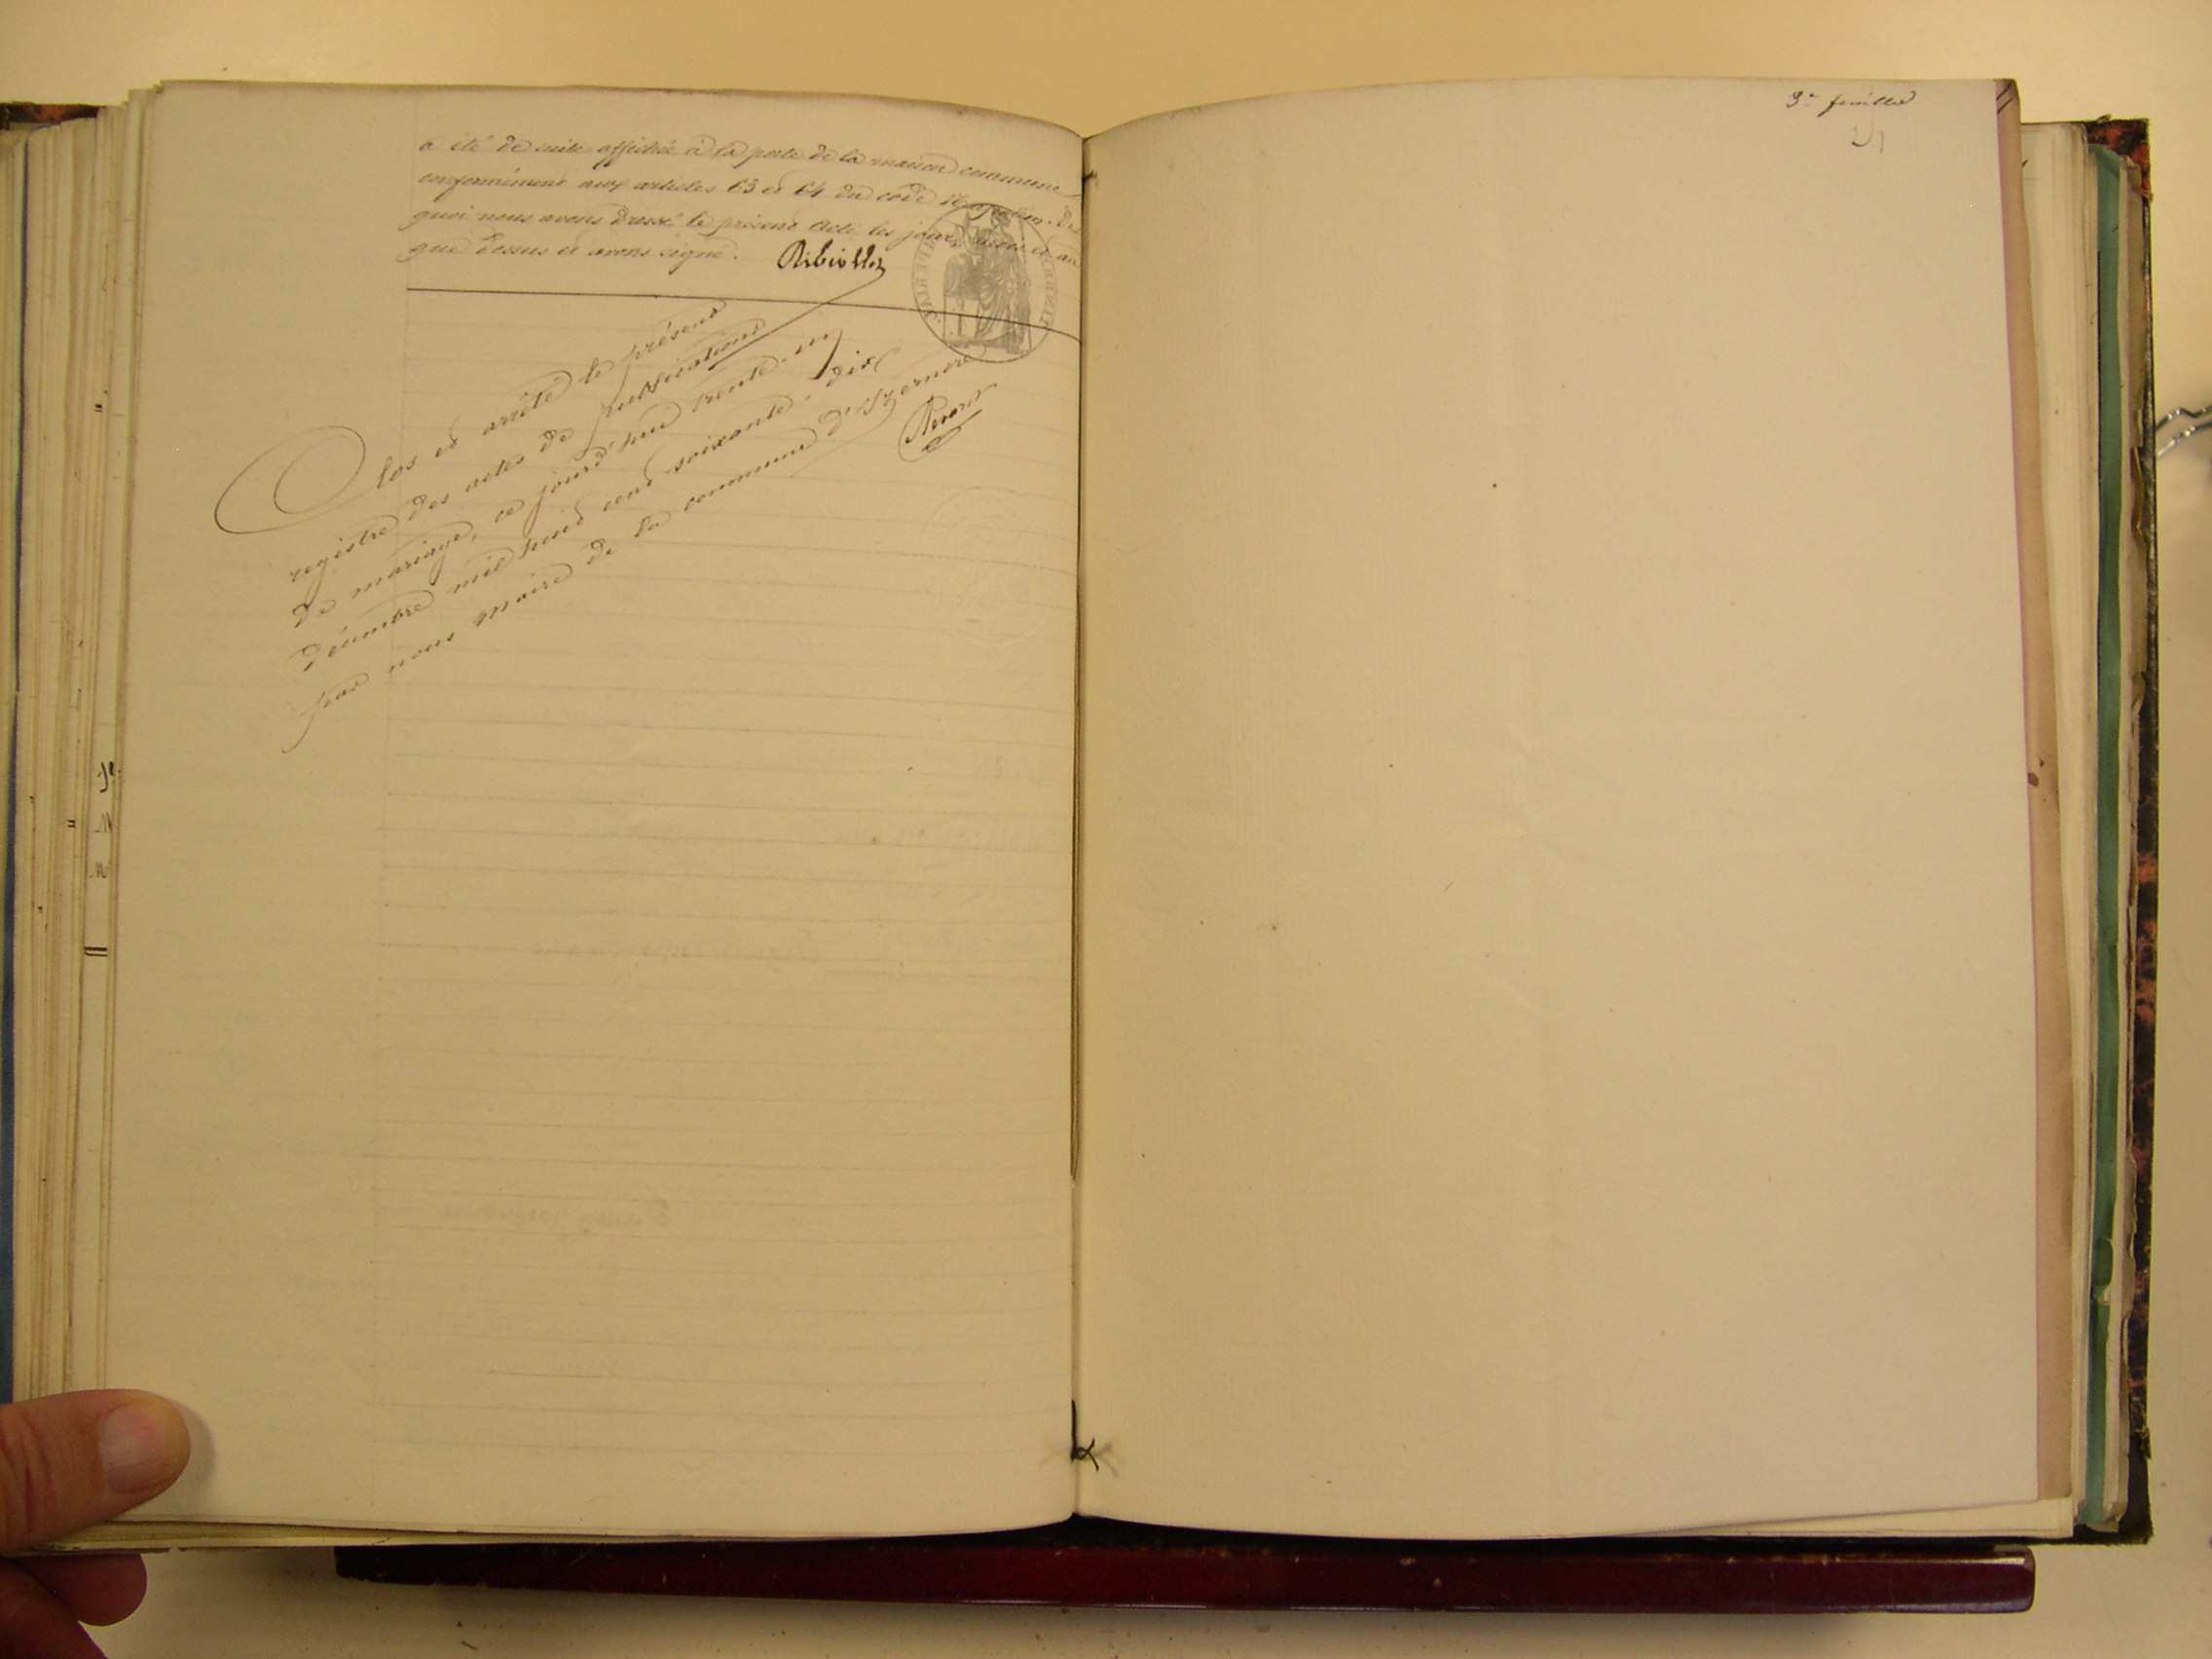 a été de suite affichée à la porte de la maison commune
conformément aux articles 63 et 64 du code Napoléon. De
quoi nous avons dressé le présent acte les jour, mois et an
que dessus et avons signé. Ribiollet
Clos et arrêté le présent
registre des actes de publications
de mariage, ce jourd'hui trente-un
décembre mil huit cent soixante-dix
par nous Maire de la commune d'Izernore
Revon
3e feuille